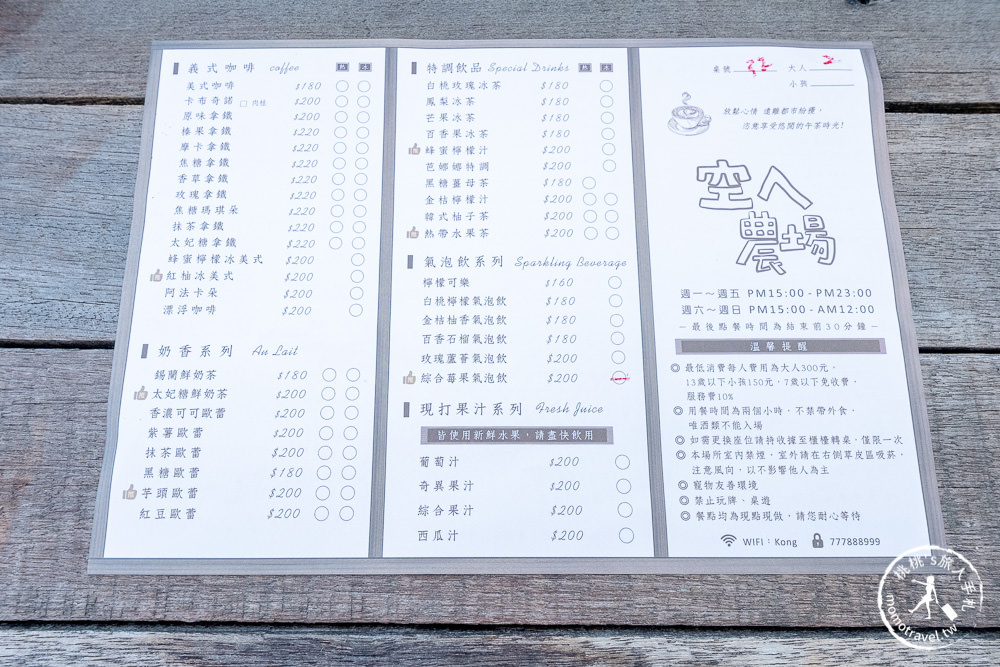 義式咖啡 coffee 熱 冰
美式咖啡 $180
卡布奇諾 □肉桂 $200
原味拿鐵 $200
榛果拿鐵 $220
摩卡拿鐵 $220
焦糖拿鐵 $220
香草拿鐵 $220
玫瑰拿鐵 $220
焦糖瑪琪朵 $220
抹茶拿鐵 $220
太妃糖拿鐵 $220
蜂蜜檸檬冰美式 $200
紅柚冰美式 $200
阿法卡朵 $200
漂浮咖啡 $200
奶香系列 Au Lait
錫蘭鮮奶茶 $180
太妃糖鮮奶茶 $200
香濃可可歐蕾 $200
紫薯歐蕾 $200
抹茶歐蕾 $200
黑糖歐蕾 $180
芋頭歐蕾 $200
紅豆歐蕾 $200
特調飲品 Special Drinks 熱 冰
白桃玫瑰冰茶 $180
鳳梨冰茶 $180
芒果冰茶 $180
百香果冰茶 $180
蜂蜜檸檬汁 $200
芭娜娜特調 $200
黑糖薑母茶 $180
金桔檸檬汁 $200
韓式柚子茶 $200
熱帶水果茶 $200
氣泡飲系列 Sparkling Beverage
檸檬可樂 $160
白桃檸檬氣泡飲 $180
金桔柚香氣泡飲 $180
百香石榴氣泡飲 $180
玫瑰蘆薈氣泡飲 $200
綜合莓果氣泡飲 $200
現打果汁系列 Fresh Juice
皆使用新鮮水果，請盡快飲用
葡萄汁 $200
奇異果汁 $200
綜合果汁 $200
西瓜汁 $200
桌號 大人
小孩
放鬆心情 遠離都市紛擾，
恣意享受悠閒的午茶時光!
空人農場
週一～週五 PM15:00 - PM23:00
週六～週日 PM15:00 - AM12:00
－最後點餐時間為結束前30分鐘－
溫馨提醒
◎ 最低消費每人費用為大人300元，
13歲以下小孩150元，7歲以下免收費，
服務費10%
◎ 用餐時間為兩個小時，不禁帶外食，
唯酒類不能入場
◎ 如需更換座位請持收據至櫃檯轉桌，僅限一次
◎ 本場所室內禁煙，室外請在右側草皮區吸菸，
注意風向，以不影響他人為主
◎ 寵物友善環境
◎ 禁止玩牌、桌遊
◎ 餐點均為現點現做，請您耐心等待
WIFI：Kong 777888999
桃桃's旅人手札
momotravel.tw